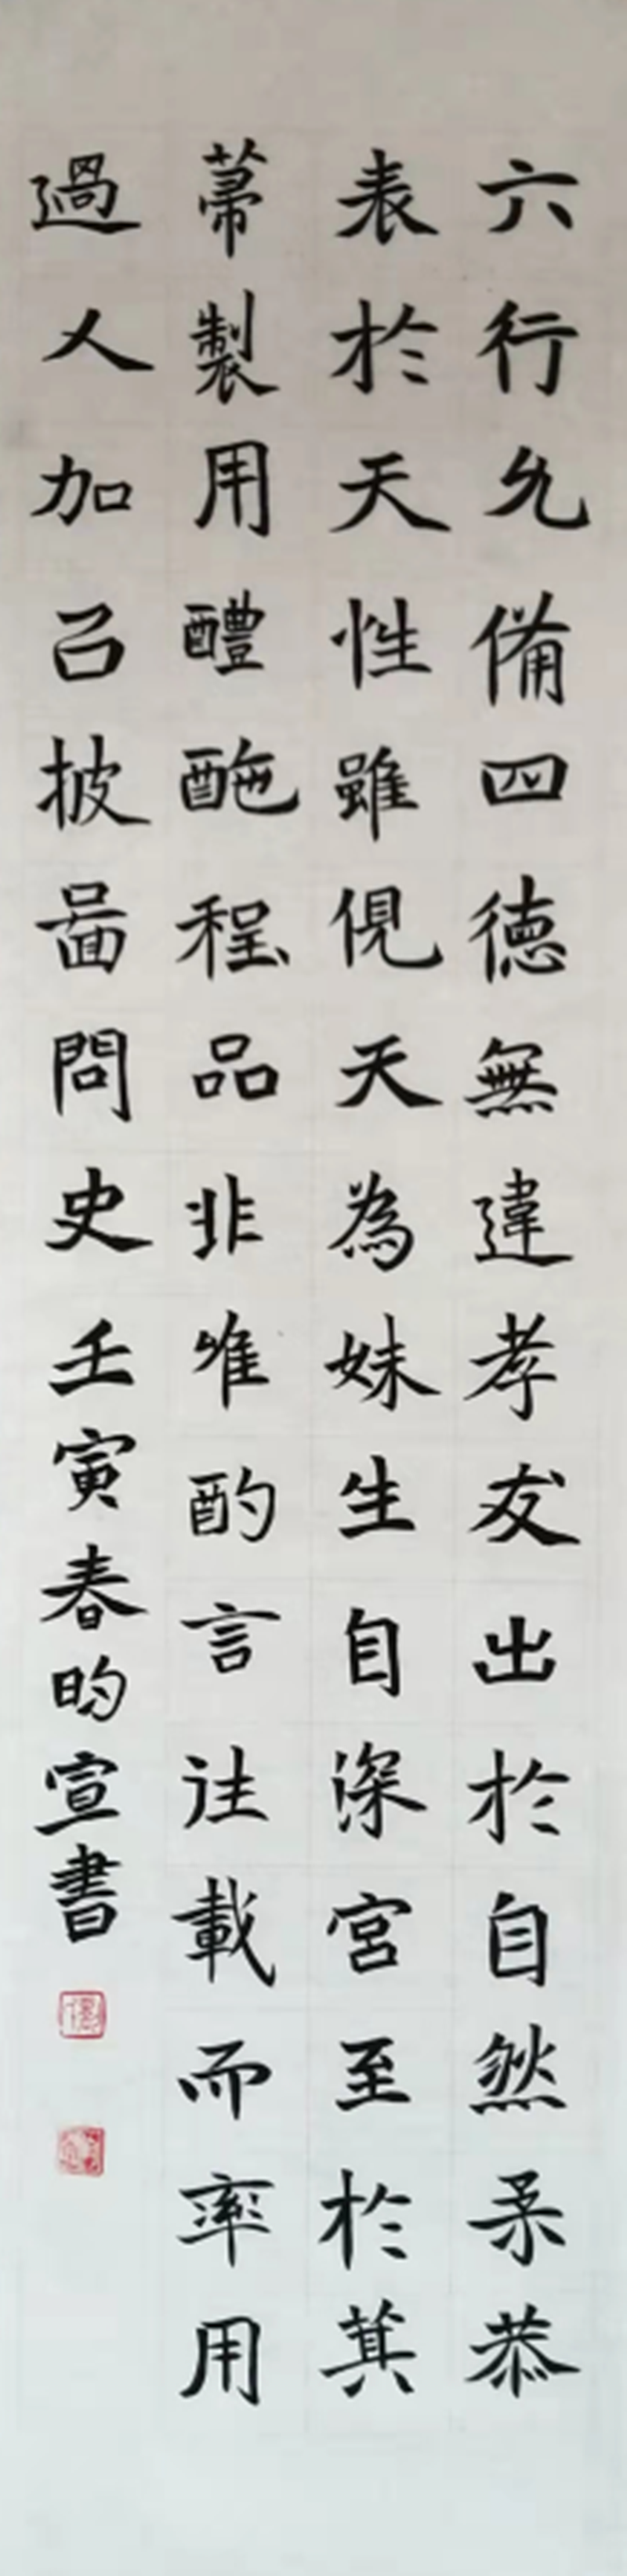 六行允俻四德無違孝友出於自然柔恭
表於天性雖俔天為妹生自深宮至於箕
帚製用醴酏程品非唯酌言往載而率用
過人加㠯披啚問史壬寅春昀宣書